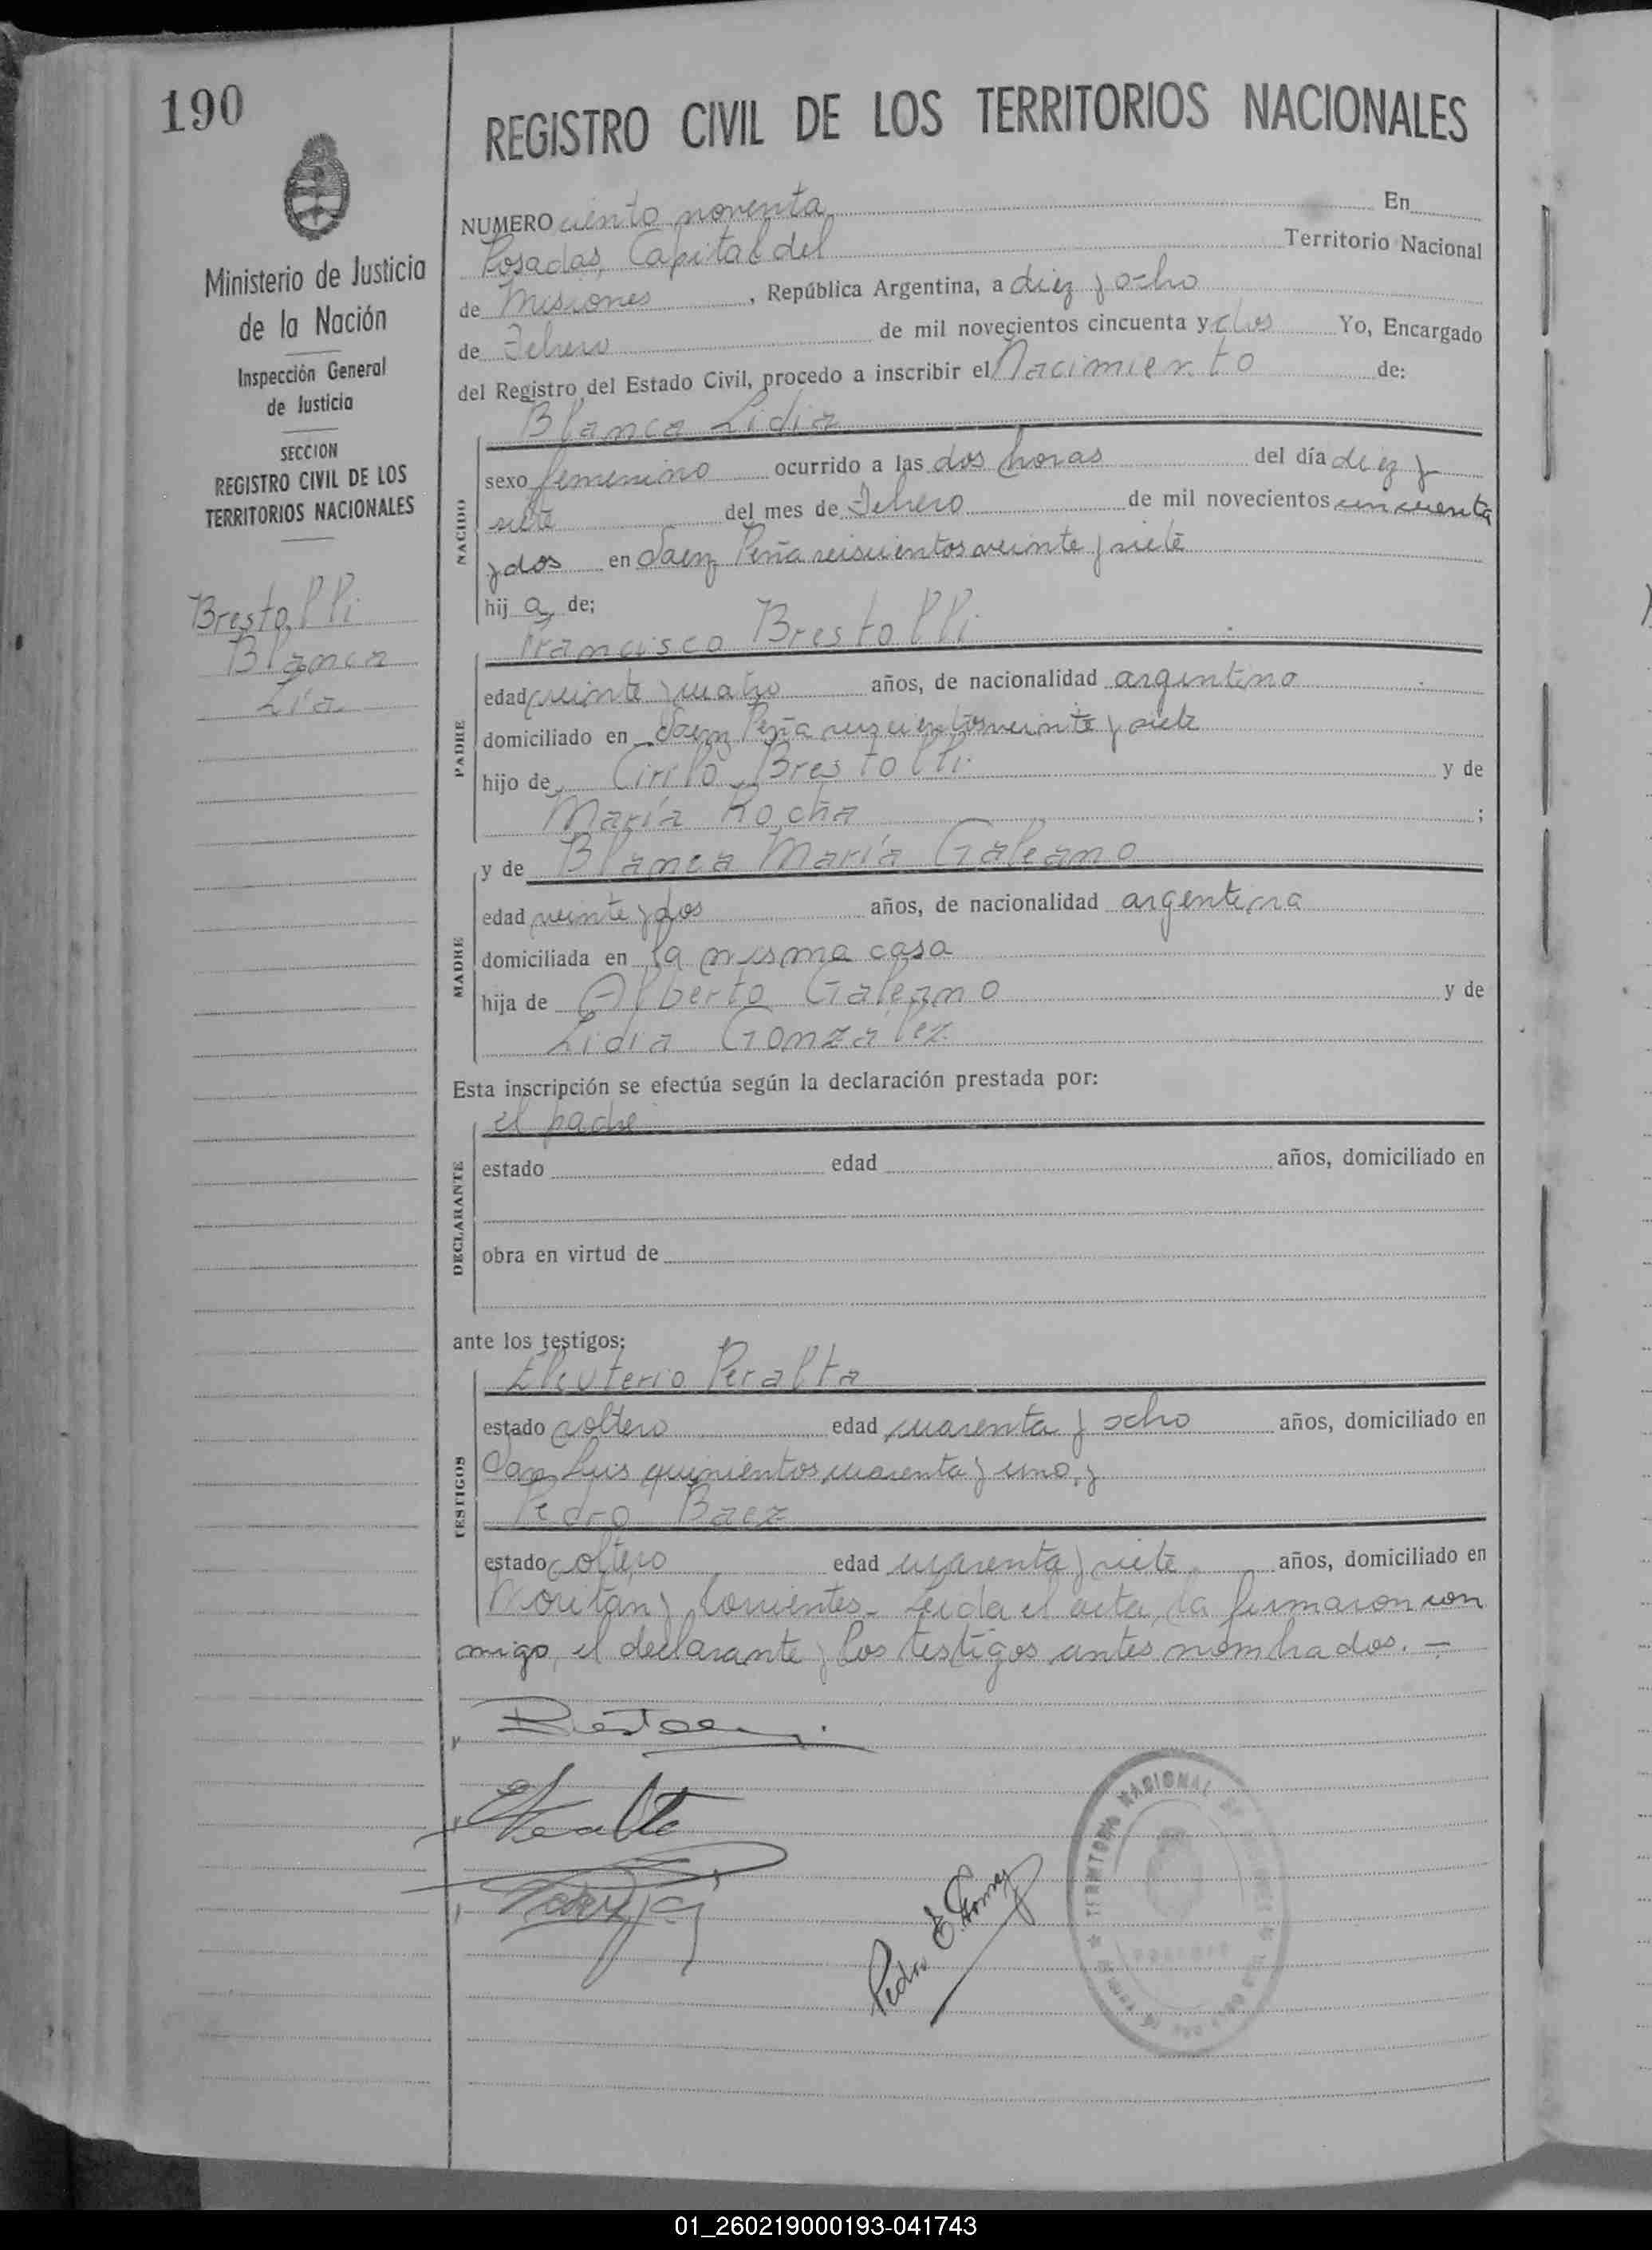 190
Ministerio de Justicia
de la Nación
Inspección General
de Justicia
SECCION
REGISTRO CIVIL DE LOS
TERRITORIOS NACIONALES
Brestolli
Blanca
Lia
REGISTRO CIVIL DE LOS TERRITORIOS NACIONALES
NUMERO ciento noventa En
Posadas, Capital del Territorio Nacional
de Misiones, República Argentina, a diez y ocho
de Febrero de mil novecientos cincuenta y dos Yo, Encargado
del Registro del Estado Civil, procedo a inscribir el Nacimiento de:
Blanca Lidia
NACIDO
sexo femenino ocurrido a las dos horas del día diez y
siete del mes de Febrero de mil novecientos cincuenta
y dos en Saenz Peña seiscientos veinte y siete
hij a de;
Francisco Brestolli
PADRE
edad veinte y cuatro años, de nacionalidad argentino
domiciliado en Saenz Peña seiscientos veinte y siete
hijo de Cirilo Brestolli y de
María Rocha ;
y de Blanca María Galeano
MADRE
edad veinte y dos años, de nacionalidad argentina
domiciliada en la misma casa
hija de Alberto Galeano y de
Lidia Gonzalez
Esta inscripción se efectúa según la declaración prestada por:
el padre
DECLARANTE
estado edad años, domiciliado en
obra en virtud de
ante los testigos:
Eleuterio Peralta
TESTIGOS
estado soltero edad cuarenta y ocho años, domiciliado en
San Luis quinientos cuarenta y uno, y
Pedro Baez
estado soltero edad cuarenta y siete años, domiciliado en
Moritan y Corrientes. Leida el acta, la firmaron con
migo, el declarante y los testigos antes nombrados. —
Pedro E. Gomez
TERRITORIO NACIONAL DE
01_260219000193-041743